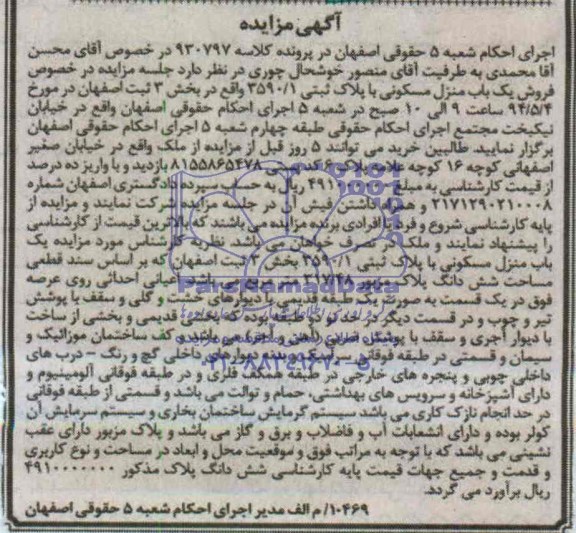 آگهی مزایده
اجرای احکام شعبه ۵ حقوقی اصفهان در پرونده کلاسه ۹۳۰۷۹۷ در خصوص آقای محسن
آقا محمدی به طرفیت آقای منصور خوشحال چوری در نظر دارد جلسه مزایده در خصوص
فروش یک باب منزل مسکونی با پلاک ثبتی ۳۵۹۰/۱ واقع در بخش ۳ ثبت اصفهان در مورخ
۹۴/۵/۴ ساعت ۹ الی ۱۰ صبح در شعبه ۵ اجرای احکام حقوقی اصفهان واقع در خیابان
نیکبخت مجتمع اجرای احکام حقوقی طبقه چهارم شعبه ۵ اجرای احکام حقوقی اصفهان
برگزار نمایید. طالبین خرید می توانند ۵ روز قبل از مزایده از ملک واقع در خیابان صغیر
اصفهانی کوچه ۱۶ کوچه پلاک ۶ کدپستی ۸۱۵۵۸۶۵۴۷۸ بازدید و با واریز ده درصد
از قیمت کارشناسی به مبلغ ریال به حساب سپرده دادگستری اصفهان شماره
۲۱۷۱۲۹۰۲۱۰۰۰۸ و همراه داشتن فیش آن در جلسه مزایده شرکت نمایند و مزایده از
پایه کارشناسی شروع و فرد یا افرادی برنده مزایده می باشند که بالاترین قیمت از کارشناسی
را پیشنهاد نمایند و ملک در تصرف خواهان می باشد. نظریه کارشناس مورد مزایده یک
باب منزل مسکونی با پلاک ثبتی ۳۵۹۰/۱ بخش ۳ ثبت اصفهان که بر اساس سند قطعی
مساحت شش دانگ پلاک مزبور ۲۱۷/۴۸ متر مربع می باشد. اعیانی احداثی روی عرصه
فوق در یک قسمت به صورت یک طبقه قدیمی با دیوارهای خشت و گلی و سقف با پوشش
تیر و چوب و در قسمت دیگر دو طبقه بوده که بخشی قدیمی و بخشی از ساخت
با دیوار آجری و سقف با پوشش تیرآهن و آجر می باشد. کف ساختمان موزائیک و
سیمان و قسمتی در طبقه فوقانی سرامیک و بدنه دیوارهای داخلی گچ و رنگ - درب های
داخلی چوبی و پنجره های خارجی در طبقه همکف فلزی و در طبقه فوقانی آلومینیوم و
دارای آشپزخانه و سرویس های بهداشتی، حمام و توالت می باشد و قسمتی از طبقه فوقانی
در حد انجام نازک کاری می باشد سیستم گرمایش ساختمان بخاری و سیستم سرمایش آن
کولر بوده و دارای انشعابات آب و فاضلاب و برق و گاز می باشد و پلاک مزبور دارای عقب
نشینی می باشد که با توجه به مراتب فوق و موقعیت محل و ابعاد در مساحت و نوع کاربری
و قدمت و جمیع جهات قیمت پایه کارشناسی شش دانگ پلاک مذکور ۴۹۱۰۰۰۰۰۰۰
ریال برآورد می گردد.
۱۰۴۶۹/ م الف مدیر اجرای احکام شعبه ۵ حقوقی اصفهان
ParsNamadData
۰۲۱-۸۸۳۴۹۶۷۰-۵